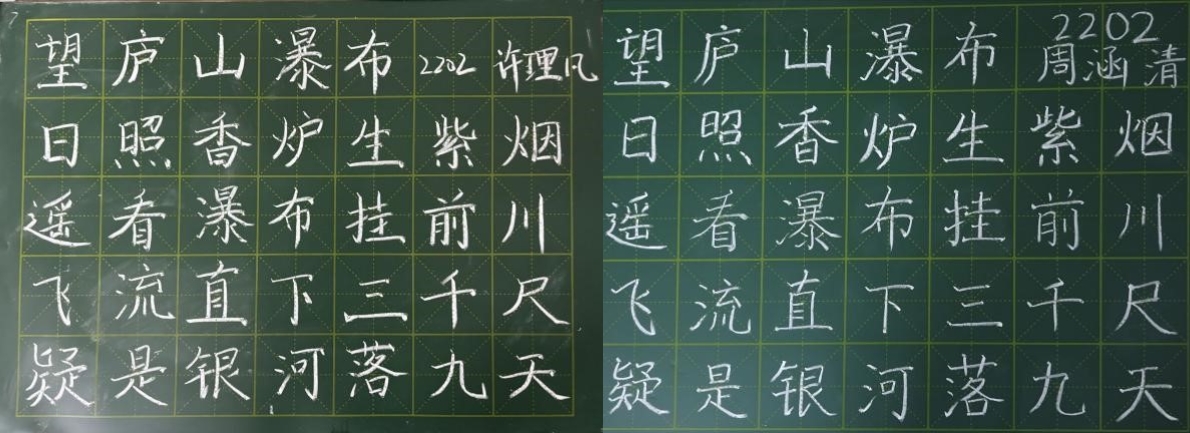 望庐山瀑布 2202 许理凡
日照香炉生紫烟
遥看瀑布挂前川
飞流直下三千尺
疑是银河落九天
望庐山瀑布 2202 周涵清
日照香炉生紫烟
遥看瀑布挂前川
飞流直下三千尺
疑是银河落九天